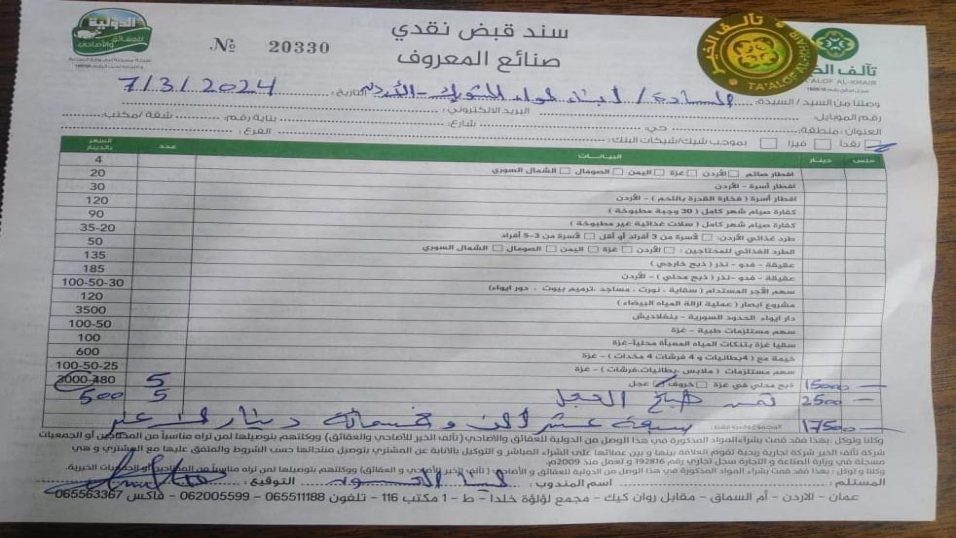 سند قبض نقدي
صنائع المعروف
№ 20330
الدولية
للعقائق والأضاحي
تآلف الخير
TA'ALOF AL-KHAIR
وصلنا من السيد / السيدة: السادة / أبناء لواء الشوبك - الأردن التاريخ: 7/3/2024
رقم الموبايل: البريد الالكتروني:
العنوان: منطقة: حي: شارع: بناية رقم: شقة / مكتب:
نقداً فيزا بموجب شيك/شيكات البنك: الفرع:
فلس دينار البيانات عدد السعر بالدينار
افطار صائم الأردن غزة اليمن الصومال الشمال السوري 4
افطار أسرة - الأردن 20
افطار أسرة ( فخارة القدرة باللحم ) - الأردن 30
كفارة صيام شهر كامل ( 30 وجبة مطبوخة ) 120
كفارة صيام شهر كامل ( سلات غذائية غير مطبوخة ) 90
طرد غذائي الأردن: لأسرة من 3 أفراد أو أقل لأسرة من 3-5 أفراد 35-20
الطرد الغذائي للمحتاجين: الأردن غزة اليمن الصومال الشمال السوري 50
عقيقة - فدو - نذر ( ذبح خارجي ) 135
عقيقة - فدو - نذر ( ذبح محلي ) - الأردن 185
سهم الأجر المستدام ( سقاية ، نورت ، مساجد ،ترميم بيوت ، دور ايواء ) 100-50-30
مشروع ابصار ( عملية ازالة المياه البيضاء ) 120
دار ايواء الحدود السورية - بنغلاديش 3500
سهم مستلزمات طبية - غزة 100-50
سقيا غزة بتنكات المياه المعبأة محلياً-غزة 100
خيمة مع ( 4بطانيات و 4 فرشات 4 مخدات ) - غزة 600
سهم مستلزمات ( ملابس ،بطانيات،فرشات ) - غزة 100-50-25
15000 ذبح محلي في غزة خروف عجل 5 3000-480
2500 ثمن طبخ العجل 5 500
17500 المجموع سبعة عشر ألف وخمسمائة دينار لا غير
وكلنا ونوكل: بهذا فقد قمت بشراء المواد المذكورة في هذا الوصل من الدولية للعقائق والأضاحي (تآلف الخير للأضاحي والعقائق) ووكلتهم بتوصيلها لمن تراه مناسباً من المحتاجين أو الجمعيات
شركة تآلف الخير شركة تجارية ربحية تقوم العلاقة بينها و بين عملائها على الشراء المباشر و التوكيل بالانابة عن المشتري بتوصيل منتجاتها حسب الشروط والمتفق عليها مع المشتري و هي
مسجلة في وزارة الصناعة و التجارة سجل تجاري رقم 192816 و تعمل منذ 2009م.
المستلم: اسم المندوب: التوقيع:
عمان - الاردن - أم السماق - مقابل روان كيك - مجمع لؤلؤة خلدا - ط 1 مكتب 116 - تلفون 065511188 - 062005599 - فاكس 065563367